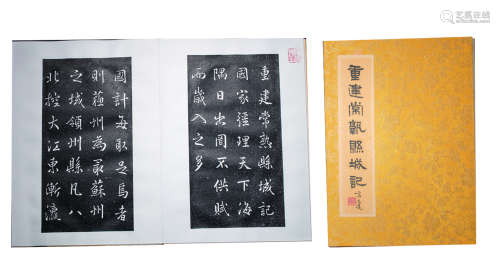 重建常熟縣城記
國家經理天下海
隅日出罔不供賦
而歲入之多
國計每取足焉者
則蘇州為最蘇州
之域領州縣凡八
北控大江東漸瀛
重建常熟縣城記